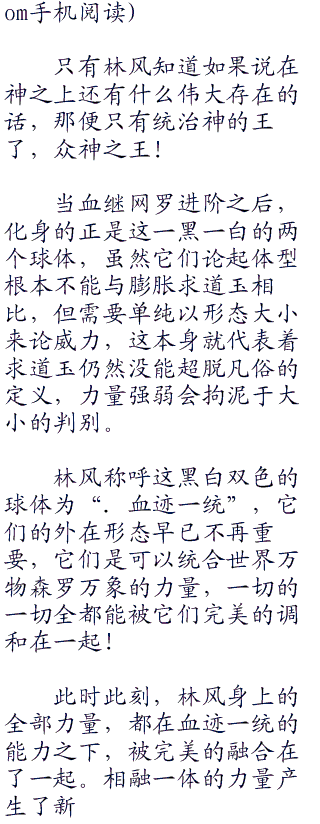 om手机阅读)
只有林风知道如果说在
神之上还有什么伟大存在的
话，那便只有统治神的王
了，众神之王！
当血继网罗进阶之后，
化身的正是这一黑一白的两
个球体，虽然它们论起体型
根本不能与膨胀求道玉相
比，但需要单纯以形态大小
来论威力，这本身就代表着
求道玉仍然没能超脱凡俗的
定义，力量强弱会拘泥于大
小的判别。
林风称呼这黑白双色的
球体为“．血迹一统”，它
们的外在形态早已不再重
要，它们是可以统合世界万
物森罗万象的力量，一切的
一切全都能被它们完美的调
和在一起！
此时此刻，林风身上的
全部力量，都在血迹一统的
能力之下，被完美的融合在
了一起。相融一体的力量产
生了新